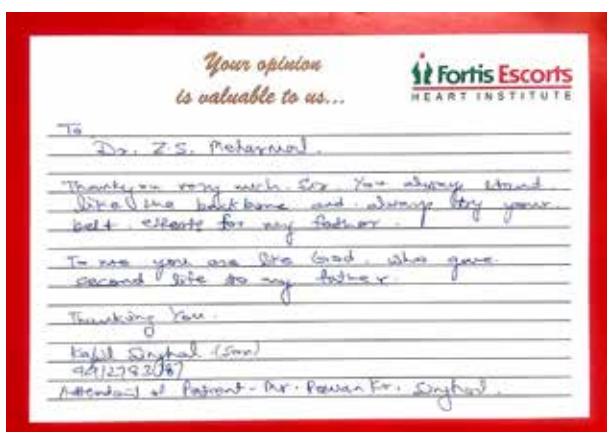 Your opinion
is valuable to us...
Fortis Escorts
HEART INSTITUTE
To
Dr. Z.S. Meharwal.
Thankyou very much Sir. You always stand
like the back bone and always try your
best efforts for my father.
To me you are like God, who gave
second life to my father.
Thanking You.
Kapil Singhal (Son)
Attendant of Patient - Mr. Pawan Kr. Singhal.